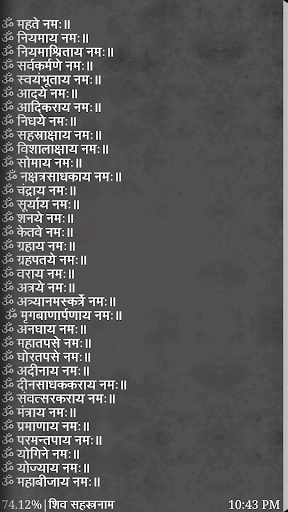 ॐ महते नमः॥
ॐ नियमाय नमः॥
ॐ नियमाश्रिताय नमः॥
ॐ सर्वकर्मणे नमः॥
ॐ स्वयंभूताय नमः॥
ॐ आदये नमः॥
ॐ आदिकराय नमः॥
ॐ निधये नमः॥
ॐ सहस्राक्षाय नमः॥
ॐ विशालाक्षाय नमः॥
ॐ सोमाय नमः॥
ॐ नक्षत्रसाधकाय नमः॥
ॐ चंद्राय नमः॥
ॐ सूर्याय नमः॥
ॐ शनये नमः॥
ॐ केतवे नमः॥
ॐ ग्रहाय नमः॥
ॐ ग्रहपतये नमः॥
ॐ वराय नमः॥
ॐ अत्रये नमः॥
ॐ अत्र्यानमस्कर्त्रे नमः॥
ॐ मृगबाणार्पणाय नमः॥
ॐ अनघाय नमः॥
ॐ महातपसे नमः॥
ॐ घोरतपसे नमः॥
ॐ अदीनाय नमः॥
ॐ दीनसाधककराय नमः॥
ॐ संवत्सरकराय नमः॥
ॐ मंत्राय नमः॥
ॐ प्रमाणाय नमः॥
ॐ परमन्तपाय नमः॥
ॐ योगिने नमः॥
ॐ योज्याय नमः॥
ॐ महाबीजाय नमः॥
74.12%|शिव सहस्त्रनाम 10:43 PM